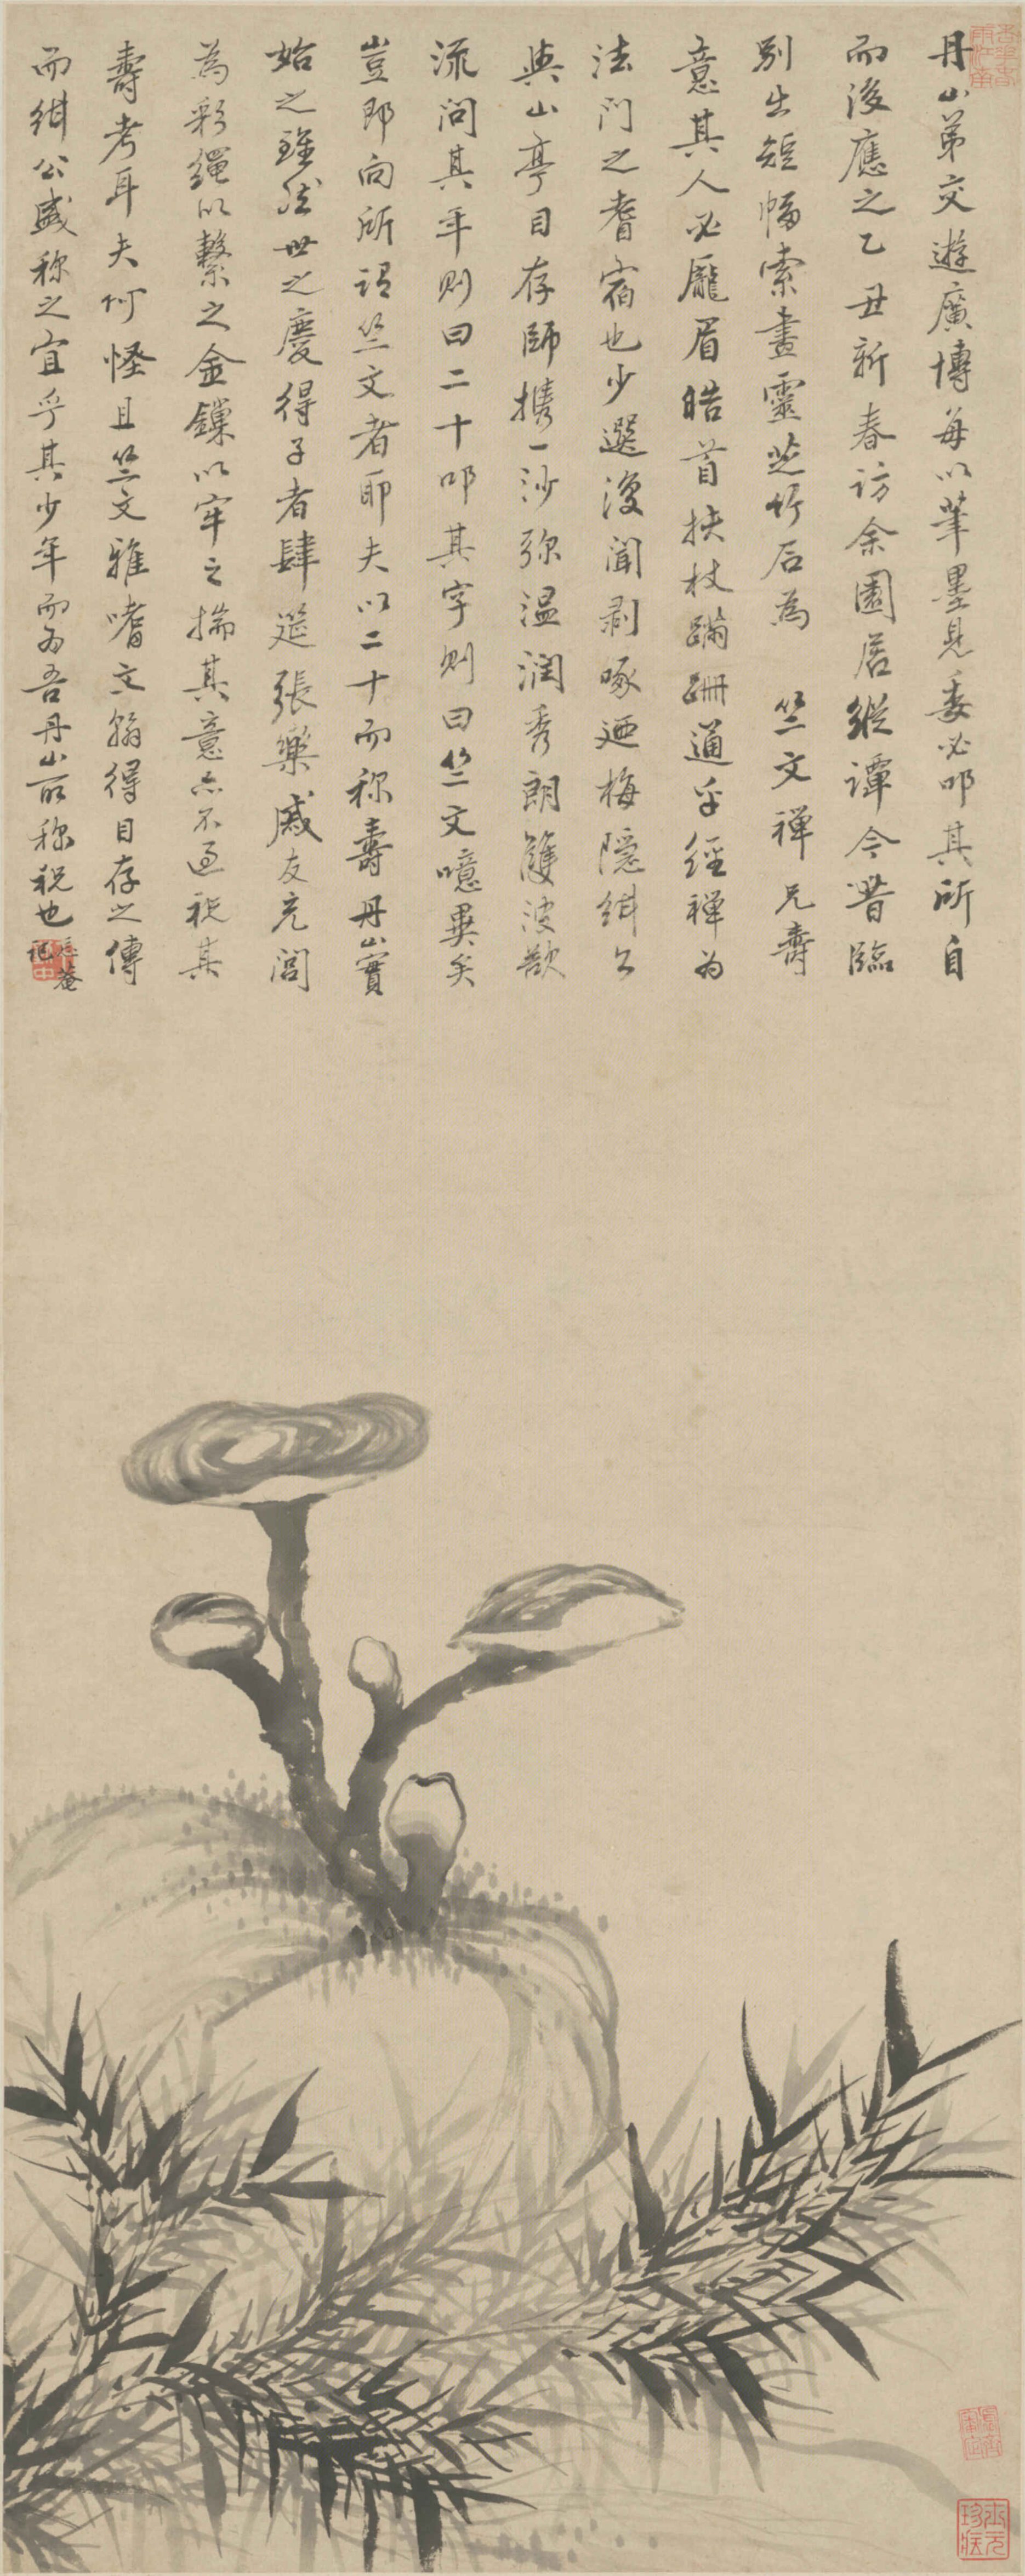 丹山弟交遊廣博每以筆墨見委必叩其所自
而後應之乙丑新春訪余園居縱譚今昔臨
別出短幅索畫靈芝竹石為竺文禪兄壽
意其人必龐眉皓首扶杖蹣跚通乎經禪為
法門之耆宿也少選復聞剥啄迺梅隱緝公
與山亭目存師携一沙弥温潤秀朗雙波欲
流問其年則曰二十叩其字則曰竺文噫異矣
豈即向所謂竺文者耶夫以二十而稱壽丹山實
始之雖然世之慶得子者肆筵張樂戚友充閭
為彩繩以繫之金鏁以牢之揣其意亦不過祝其
壽考耳夫何怪且竺文雅嗜文翰得目存之傳
而緝公盛称之宜乎其少年而為吾丹山所称祝也
菴記